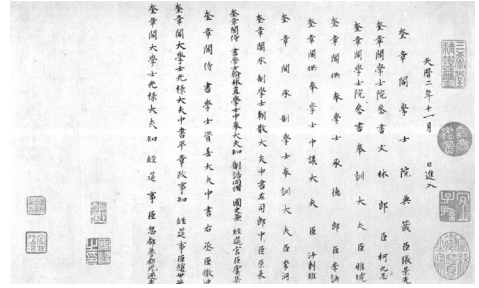 天曆二年十一月 日進入
奎章閣學士院典籤臣張景先
奎章閣學士院參書文林郎臣柯九思
奎章閣學士院參書奉訓大夫臣雅琥
奎章閣供奉學士承德郎臣李訥
奎章閣供奉學士中議大夫臣沙剌班
奎章閣承制學士奉訓大夫臣李泂
奎章閣承制學士朝散大夫中書左司郎中臣朶來
奎章閣侍書學士翰林直學士中奉大夫知制誥同脩國史兼經筵官臣虞集
奎章閣侍書學士資善大夫中書右丞臣撒迪
奎章閣大學士光祿大夫中書平章政事知經筵事臣趙世延
奎章閣大學士光祿大夫知經筵事臣忽都魯都兒迷失
三希堂精鑑璽
宜子孫